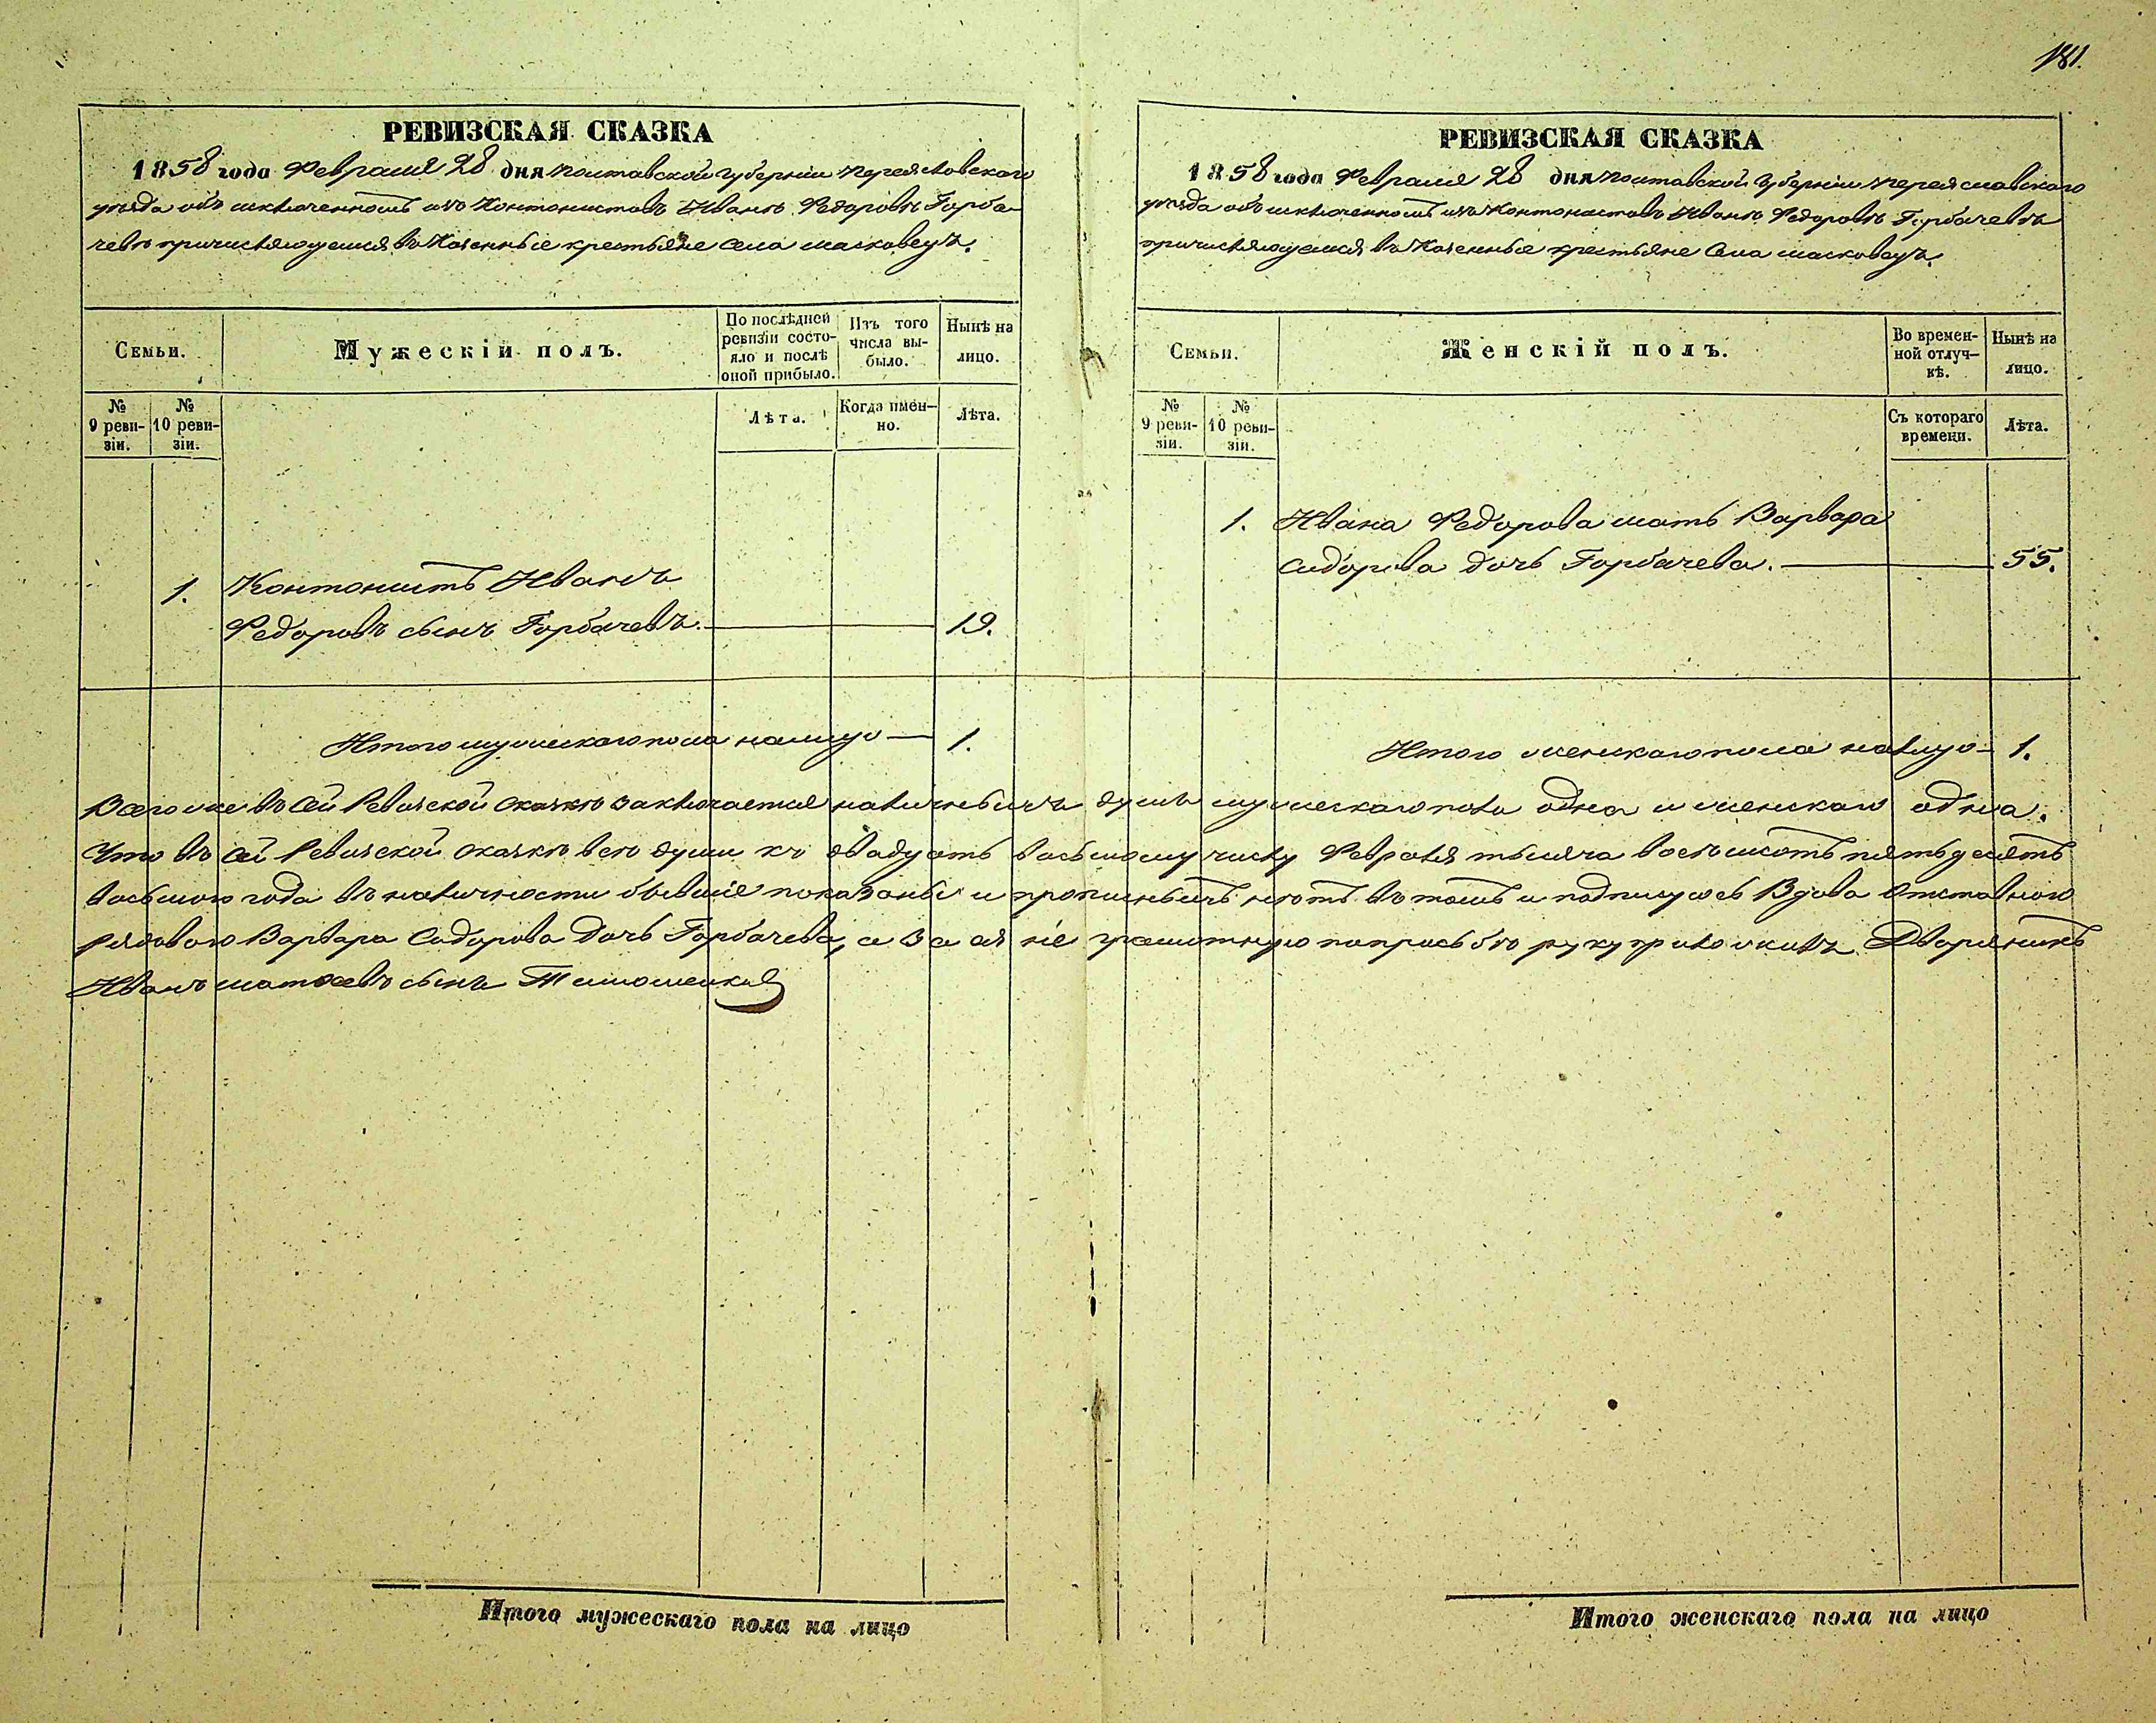 181.
РЕВИЗСКАЯ СКАЗКА
1858 года Февраля 28 дня Полтавской Губерніи Переясловскаго
уезда объ исключенномъ изъ Контонистовъ Иване Федорове Горба-
чеве причисляющемся въ Казенные крестьяне села масковецъ.
Семьи.
Мужескій полъ.
По послѣдней ревизіи состо-яло и послѣ оной прибыло.
Изъ того числа вы-было.
Нынѣ на лицо.
№ 9 реви-зіи.
№ 10 реви-зіи.
Лѣта.
Когда имен-но.
Лѣта.
1. Контонистъ Иванъ
Федоровъ сынъ Горбачевъ. 19.
Итого мужескаго пола налицо 1.
РЕВИЗСКАЯ СКАЗКА
1858 года Февраля 28 дня Полтавской Губерніи Переяславскаго
уезда объ исключенномъ изъ Контонистовъ Иване Федорове Горбачеве
причисляющемся въ Казенные крестьяне Села масковецъ.
Семьи.
Женскій полъ.
Во времен-ной отлуч-кѣ.
Нынѣ на лицо.
№ 9 реви-зіи.
№ 10 реви-зіи.
Съ котораго времени.
Лѣта.
1. Ивана Федорова мать Варвара
Сидорова дочь Горбачева. 55.
Итого женскаго пола налицо 1.
Всего же въ Сей Ревизской сказке заключается наличныхъ душъ мужескаго пола одна и женскаго одна.
Что въ сей Ревизской сказке все души къ двадцать восьмому числу Февраля тысяча восемсотъ пятьдесятъ
восьмого года въ наличности бывшіе показаны и прописныхъ нетъ въ томъ и подпишусь Вдова Отставного
Рядового Варвара Сидорова Дочь Горбачева, а за ея не грамотную попрозьбе руку приложилъ Дворянинъ
Иванъ матвеевъ сынъ Тимошенко
Итого мужескаго пола на лицо
Итого женскаго пола на лицо